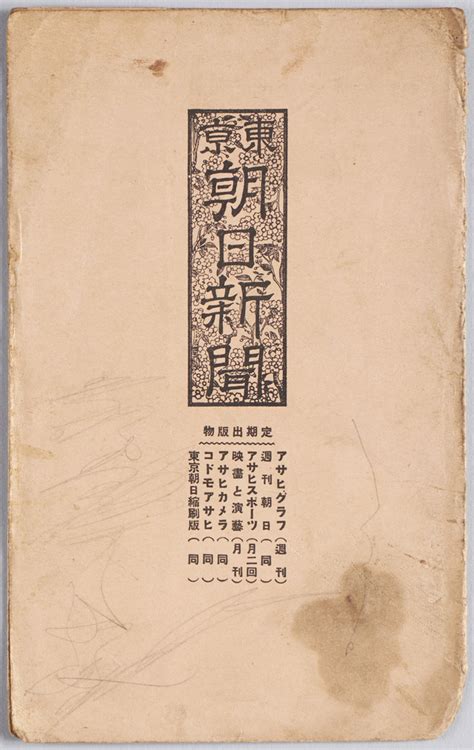 東京
朝日新聞
定期出版物
アサヒグラフ(週刊)
週刊朝日(同)
アサヒスポーツ(月二回)
映畫と演藝(月刊)
アサヒカメラ(同)
コドモアサヒ(同)
東京朝日縮刷版(同)